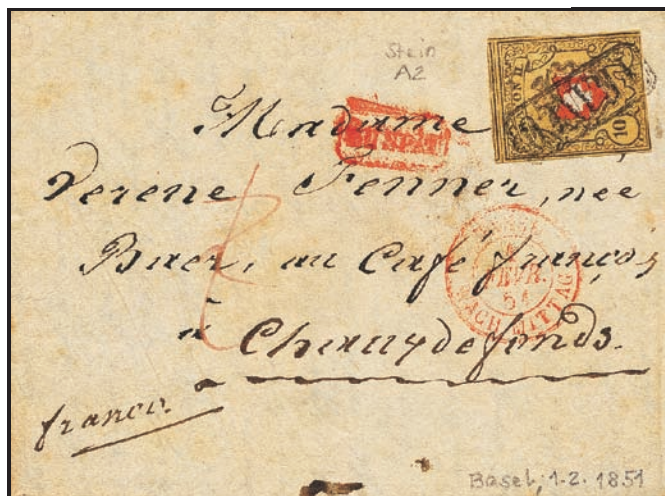 Stein
A2
10
Madame
Verene Fenner, née
Baer, au Café françois
à
Chauxdefonds.
franco.
FEVR.
51
NACHMITTAG
Basel, 1.2.1851